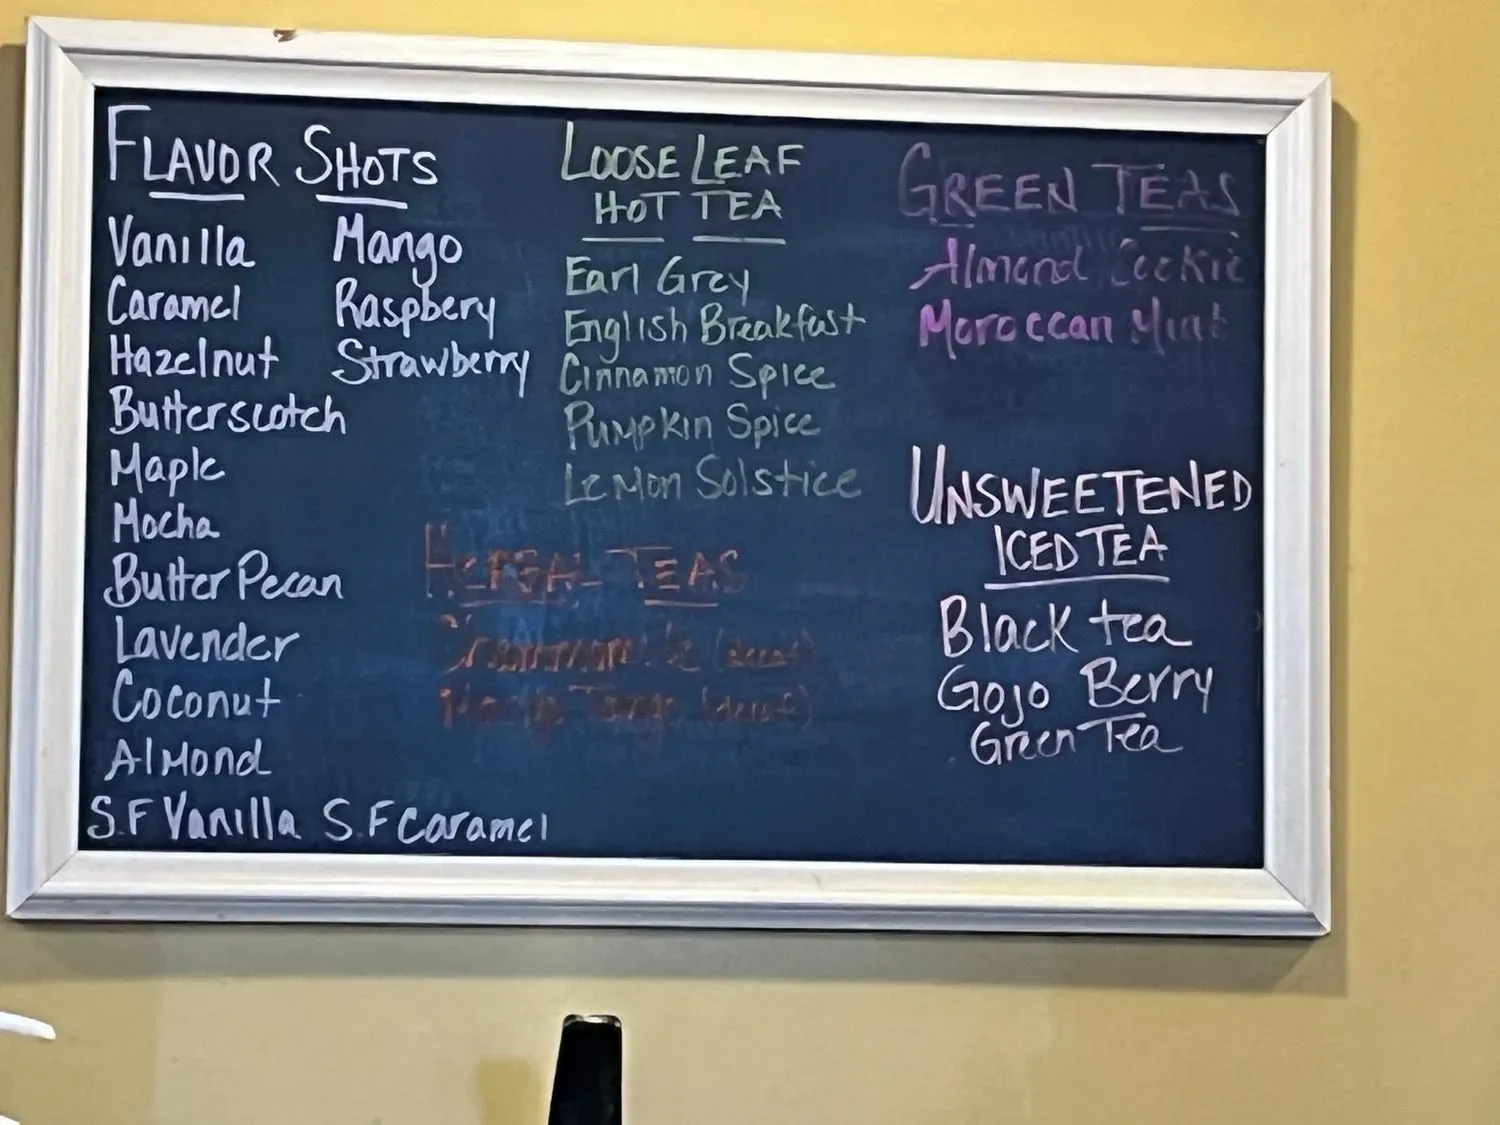 FLAVOR SHOTS
Vanilla Mango
Caramel Raspbery
Hazelnut Strawberry
Butterscotch
Maple
Mocha
Butter Pecan
Lavender
Coconut
Almond
S.F Vanilla S.F Caramel
LOOSE LEAF
HOT TEA
Earl Grey
English Breakfast
Cinnamon Spice
Pumpkin Spice
Lemon Solstice
HERBAL TEAS
(decaf)
Mango Tango (decaf)
GREEN TEAS
Almond Cookie
Moroccan Mint
UNSWEETENED
ICED TEA
Black tea
Gojo Berry
Green Tea